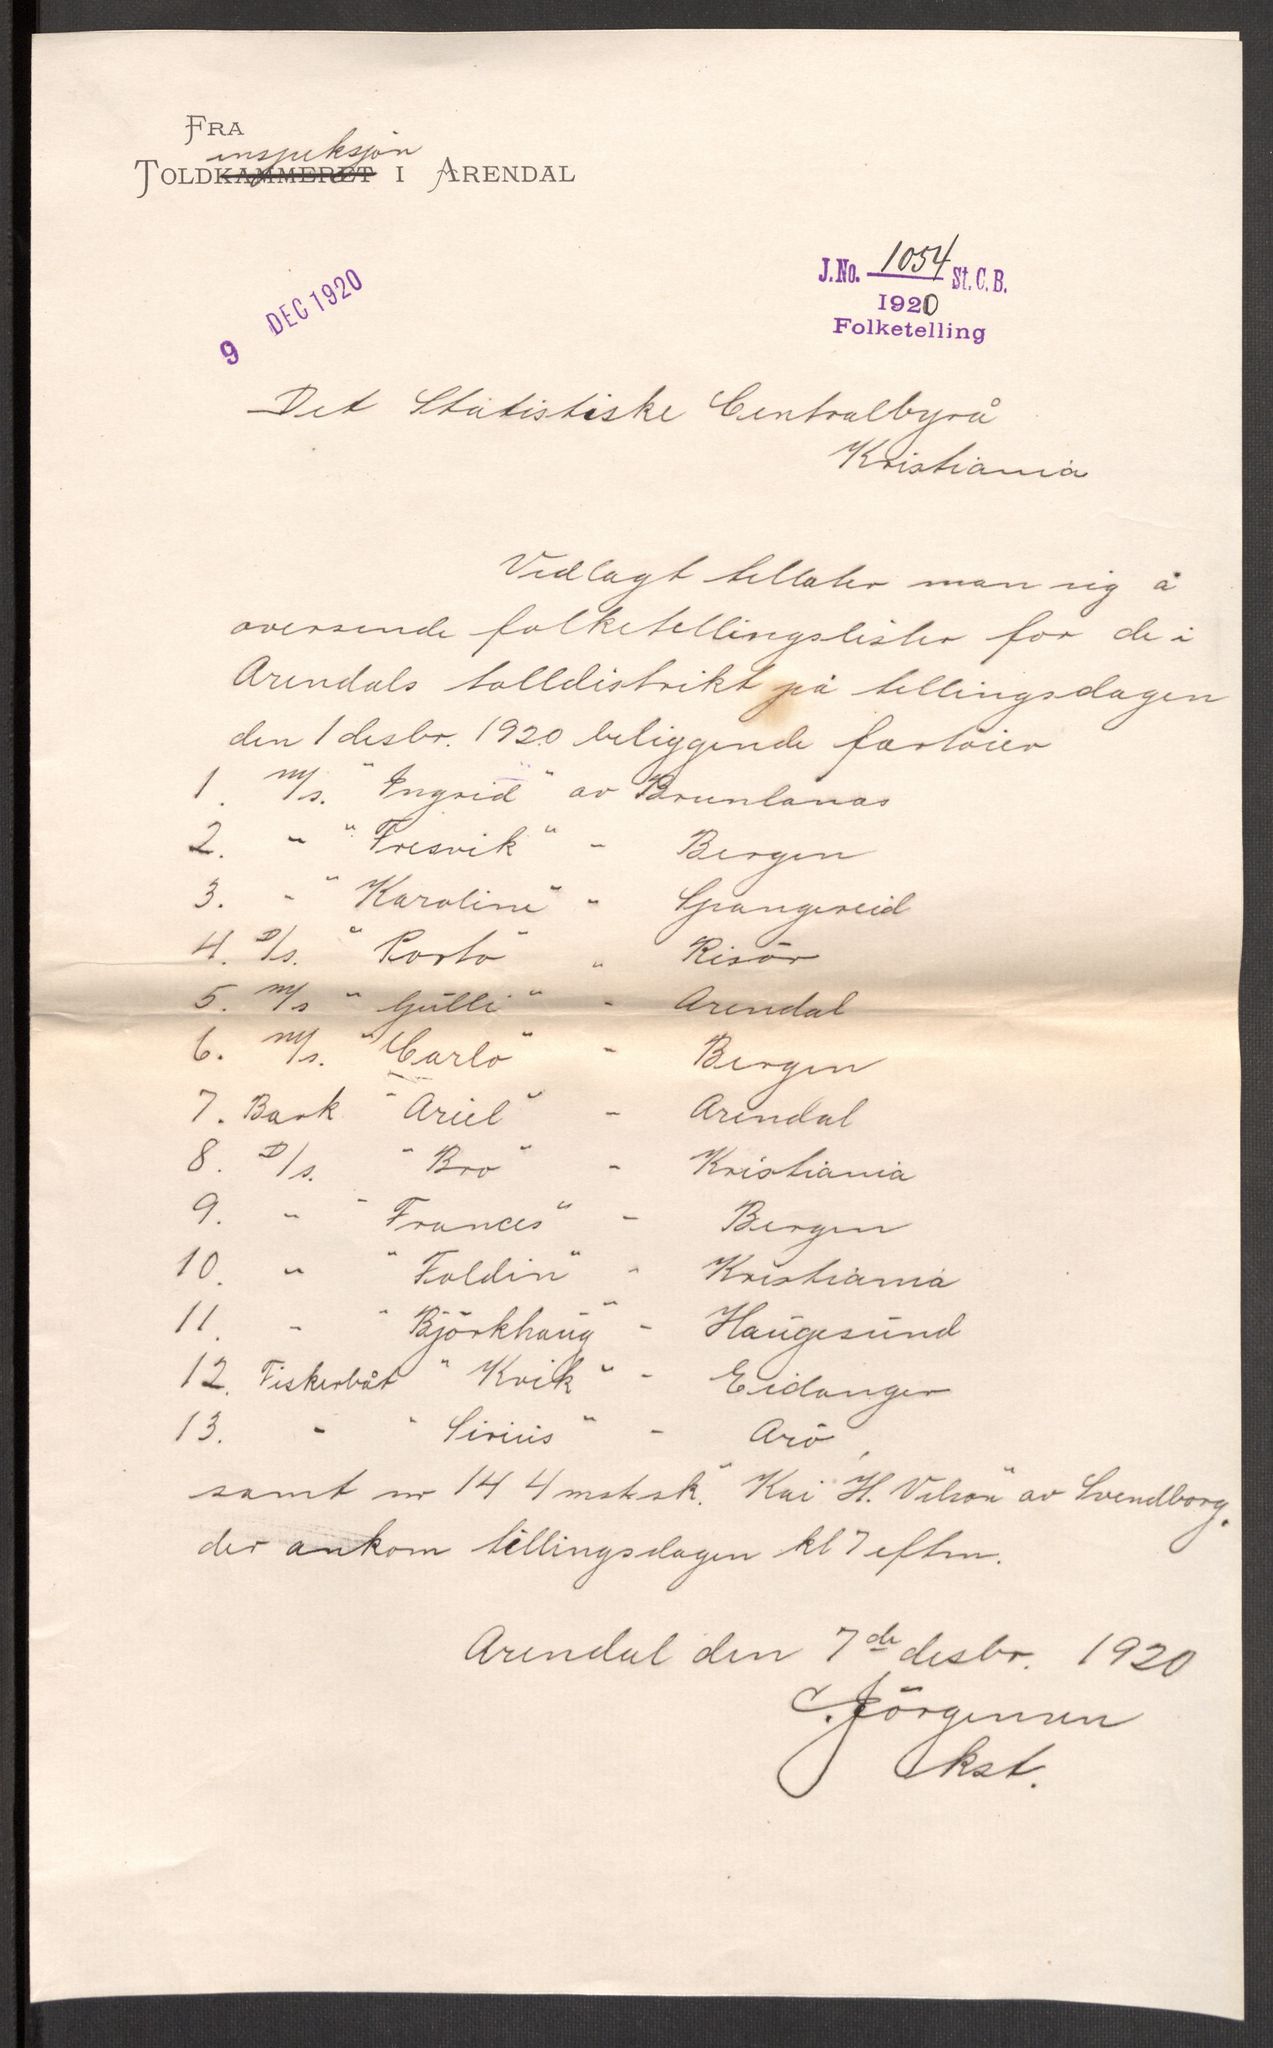 FRA
inspeksjon
TOLDKAMMERET I ARENDAL
J.No. 1054 St.C.B.
1920
Folketelling
9 DEC 1920
Det Statistiske Centralbyrå
Kristiania
Vedlagt tillater man sig å
oversende folketellingslister for de i
Arendals tolldistrikt på tellingsdagen
den 1 desbr. 1920 beliggende fartöier
1. M/s. "Ingrid" av Brunlanes
2. " "Fresvik" - Bergen
3. " "Karoline" " Spangereid
4. D/s. "Portö" " Risör
5. M/s "Gulli" - Arendal
6. M/s. "Carlo" - Bergen
7. Bark "Ariel" - Arendal
8. D/s. "Bro" - Kristiania
9. " "Frances" - Bergen
10. " "Foldin" " Kristiania
11. " "Björkhaug" - Haugesund
12. Fiskerbåt "Kvik" - Eidanger
13. " "Sirius" - Arö,
samt nr 14 4 mstsk. "Kai H. Vilsön" av Svendborg.
der ankom tellingsdagen kl 7 eftm.
Arendal den 7de desbr. 1920
C. Jörgensen
kst.